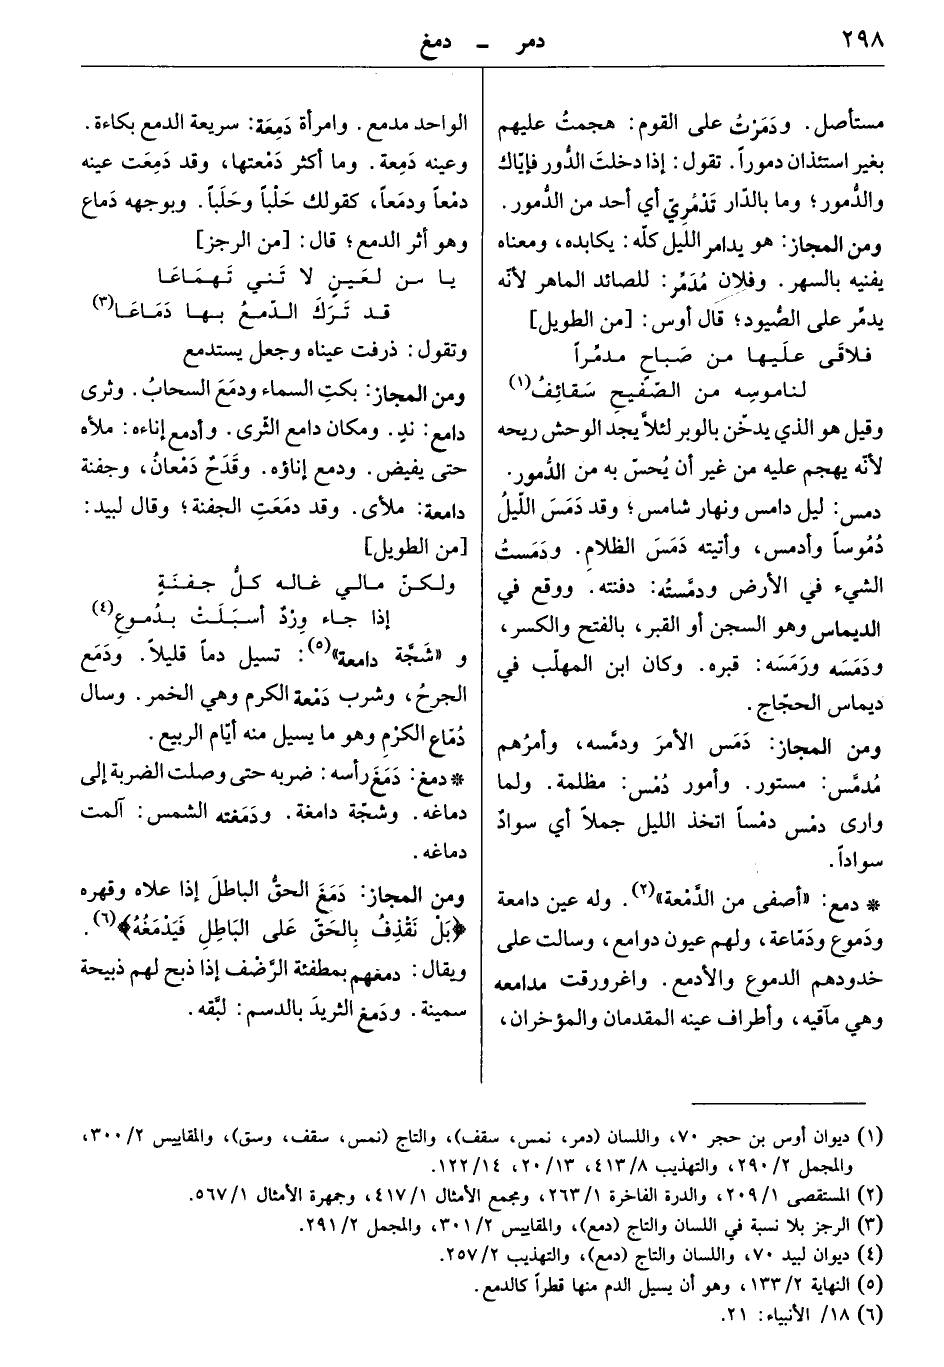 ٢٩٨
دمر ـ دمغ
مستأصل. ودَمَرْتُ على القوم: هجمتُ عليهم
بغير استئذان دموراً. تقول: إذا دخلتَ الدُّور فإيّاك
والدُّمور؛ وما بالدّار تَدْمُرِيّ أي أحد من الدُّمور.
ومن المجاز: هو يدامر الليل كلّه: يكابده، ومعناه
يفنيه بالسهر. وفلان مُدَمِّر: للصائد الماهر لأنّه
يدمِّر على الصُّيود؛ قال أوس: [من الطويل]
فلاقَى علَيها من صَباحِ مدمِّراً
لناموسِه من الصّفيحِ سَقائِفُ(١)
وقيل هو الذي يدخّن بالوبر لئلاَّ يجد الوحش ريحه
لأنّه يهجم عليه من غير أن يُحسّ به من الدُّمور.
دمس: ليل دامس ونهار شامس؛ وقد دَمَسَ اللّيلُ
دُمُوساً وأدمس، وأتيته دَمَسَ الظلامِ. ودَمَستُ
الشيء في الأرض ودمَّسته: دفنته. ووقع في
الديماس وهو السجن أو القبر، بالفتح والكسر،
ودَمَسَه ورَمَسَه: قبره. وكان ابن المهلّب في
ديماس الحجّاج.
ومن المجاز: دَمَس الأمرَ ودمَّسه، وأمرُهم
مُدمَّس: مستور. وأمور دُمْس: مظلمة. ولما
وارى دمْس دمْساً اتخذ الليل جملاً أي سوادٌ
سواداً.
* دمع: «أصفى من الدَّمْعة»(٢). وله عين دامعة
ودَموع ودَمّاعة، ولهم عيون دوامع، وسالت على
خدودهم الدموع والأدمع. واغرورقت مدامعه
وهي مآقيه، وأطراف عينه المقدمان والمؤخران،
الواحد مدمع. وامرأة دَمِعَة: سريعة الدمع بكاءة.
وعينه دَمِعة. وما أكثر دَمْعتها، وقد دَمِعَت عينه
دمْعاً ودمَعاً، كقولك حَلْباً وحَلَباً. وبوجهه دُماع
وهو أثر الدمع؛ قال: [من الرجز]
يا من لعَينٍ لا تَني تَهمَاعَا
قد تَرَكَ الدّمعُ بها دَمَاعَا(٣)
وتقول: ذرفت عيناه وجعل يستدمع
ومن المجاز: بكتِ السماء ودمَعَ السحابُ. وثرى
دامع: ندٍ. ومكان دامع الثّرى. وأدمع إناءه: ملأه
حتى يفيض. ودمع إناؤه. وقَدَحٌ دَمْعانُ، وجفنة
دامعة: ملأى. وقد دمَعَتِ الجفنة؛ وقال لبيد:
[من الطويل]
ولكنّ مالي غاله كلُّ جفنَةٍ
إذا جاء وِرْدٌ أسبَلَتْ بدُموعِ(٤)
و «شَجَّة دامعة»(٥): تسيل دماً قليلاً. ودَمَع
الجرحُ، وشرب دَمْعة الكرم وهي الخمر. وسال
دُمَاع الكرْم وهو ما يسيل منه أيّام الربيع.
* دمغ: دَمَغَ رأسه: ضربه حتى وصلت الضربة إلى
دماغه. وشجّة دامغة. ودَمَغته الشمس: آلمت
دماغه.
ومن المجاز: دَمَغَ الحقُّ الباطلَ إذا علاه وقهره
﴿بَلْ نَقْذِفُ بِالحَقّ عَلى البَاطِلِ فَيَدْمَغُهُ﴾(٦).
ويقال: دمغهم بمطفئة الرَّضْف إذا ذبح لهم ذبيحة
سمينة. ودَمَغ الثريدَ بالدسم: لبَّقه.
(١) ديوان أوس بن حجر ٧٠، واللسان (دمر، نمس، سقف)، والتاج (نمس، سقف، وسق)، والمقاييس ٣٠٠/٢،
والمجمل ٢٩٠/٢، والتهذيب ٤١٣/٨، ٢٠/١٣، ١٢٢/١٤.
(٢) المستقصى ٢٠٩/١، والدرة الفاخرة ٢٦٣/١، ومجمع الأمثال ٤١٧/١، وجمهرة الأمثال ٥٦٧/١.
(٣) الرجز بلا نسبة في اللسان والتاج (دمع)، والمقاييس ٣٠١/٢، والمجمل ٢٩١/٢.
(٤) ديوان لبيد ٧٠، واللسان والتاج (دمع)، والتهذيب ٢٥٧/٢.
(٥) النهاية ١٣٣/٢، وهو أن يسيل الدم منها قطراً كالدمع.
(٦) ١٨/ الأنبياء: ٢١.